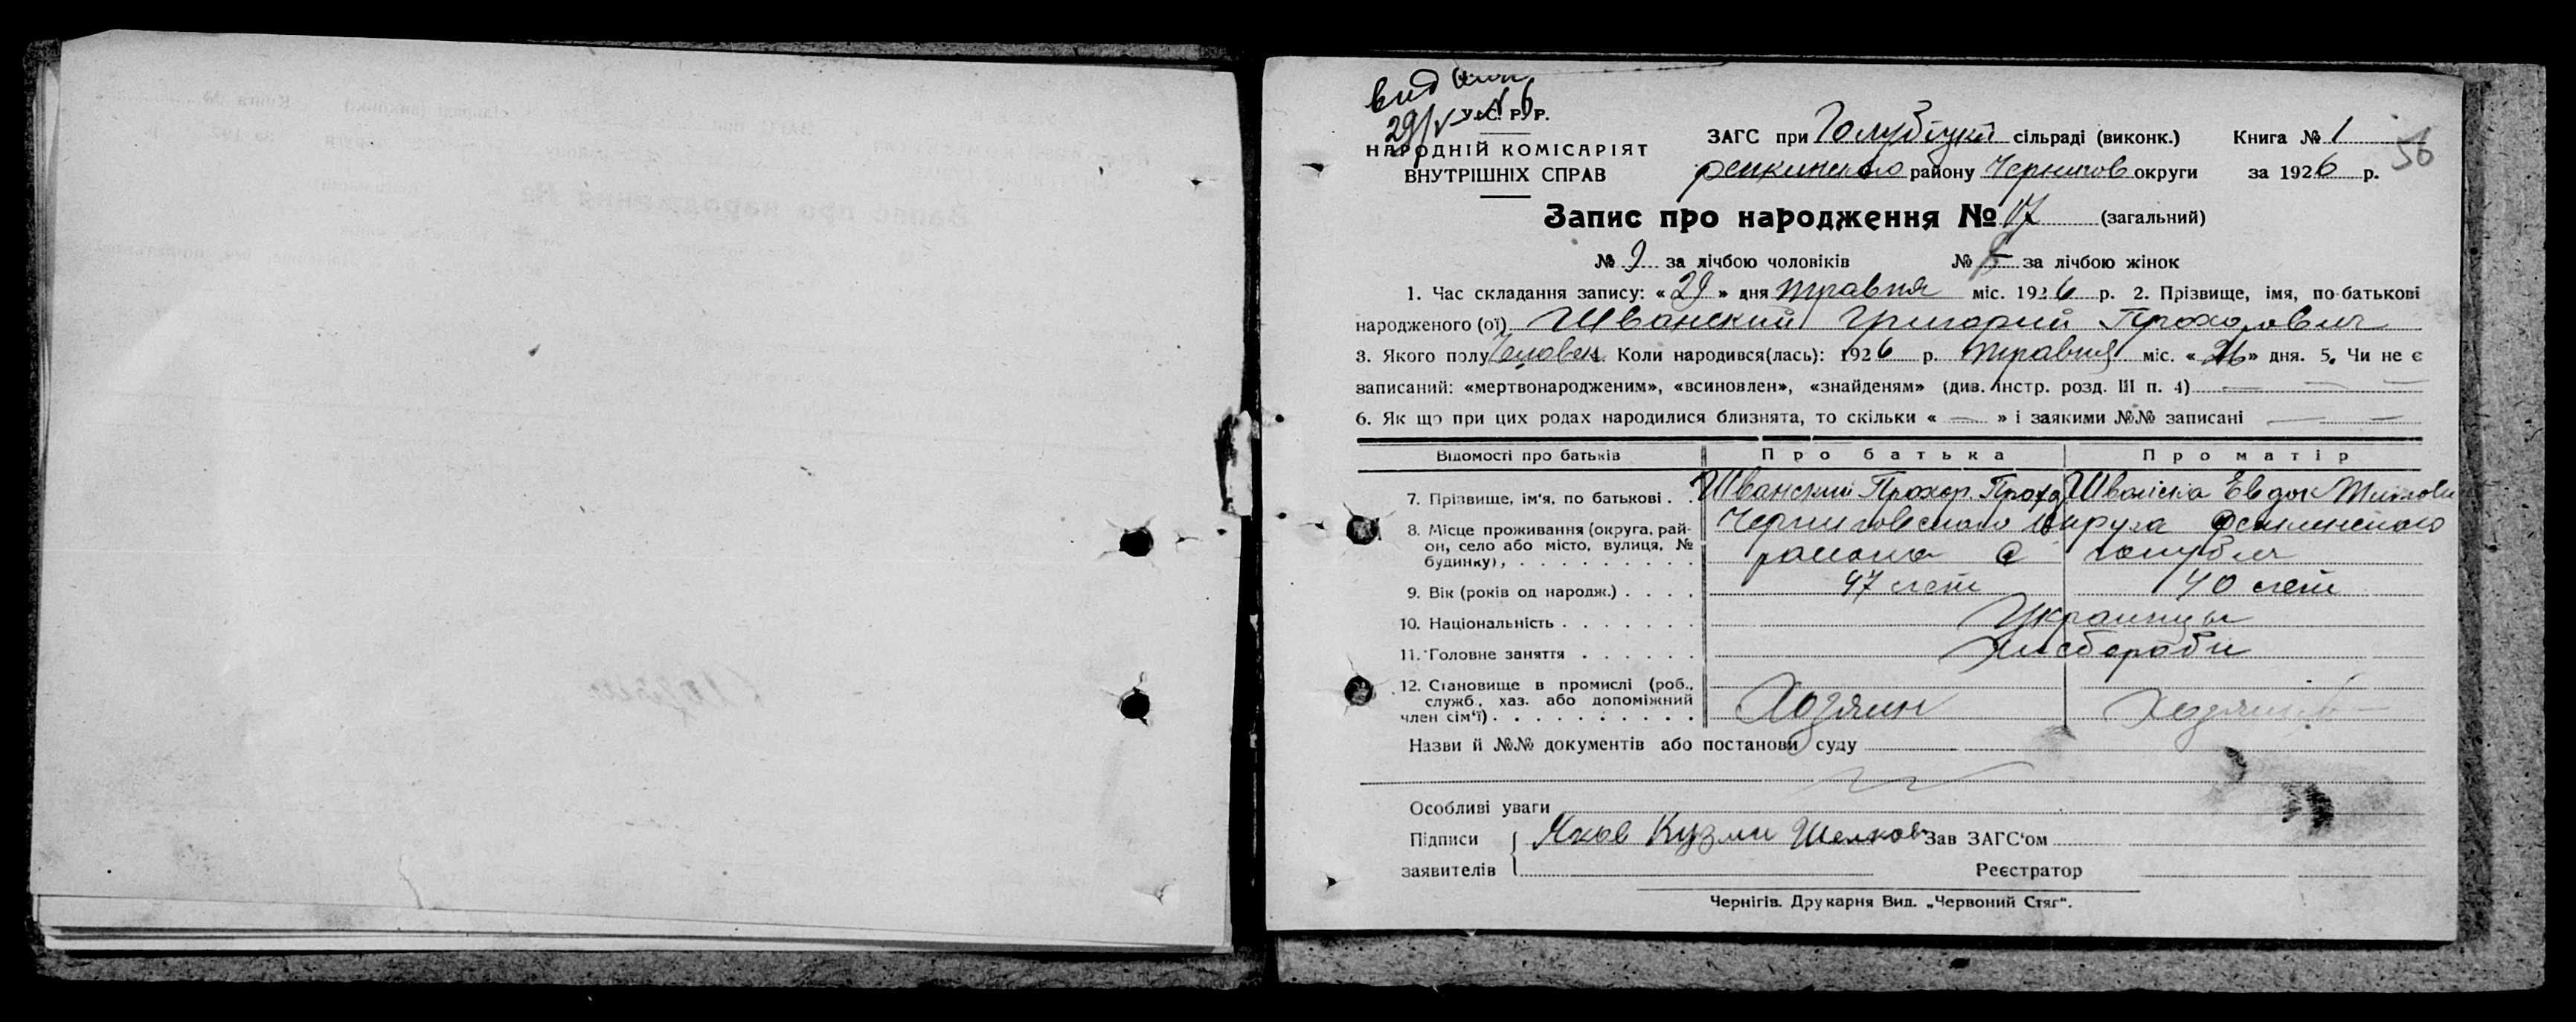 вид
29/V
У.С. Р.Р.
НАРОДНІЙ КОМІСАРІЯТ
ВНУТРІШНІХ СПРАВ
ЗАГС при Голубіцкій сільраді (виконк.) Книга № 1
56
района Чернигов округи за 1926 р.
Запис про народження № 17 (загальний)
№ 9 за лічбою чоловіків № за лічбою жінок
1. Час складання запису: « 29 » дня травня міс. 1926 р. 2. Прізвище, імя, по-батькові
народженого (ої) Шванский Григорий Прохорович
3. Якого полу Человек Коли народився(лась): 1926 р. травня міс. « 26 » дня. 5. Чи не є
записаний: «мертвонародженим», «всиновлен», «знайденям» (див. інстр. розд. III п. 4) — — —
6. Як що при цих родах народилися близнята, то скільки « — » і заякими №№ записані — —
Відомості про батьків Про батька Про матір
7. Прізвище, ім'я, по батькові . . Шванский Прохор Прохо Шванска Евдок
8. Місце проживання (округа, рай-он, село або місто, вулиця, № будинку), . . . . . . . . . . Черниговского округа
района с голубич
9. Вік (років од народж.) . . . . 47 лет 40 лет
10. Національність . . . . . . . Украинцы
11. Головне заняття . . . . . . Хлебороби
12. Становище в промислі (роб., служб., хаз. або допоміжний член сім'ї) . . . . . . . . . . Хозяин
Назви й №№ документів або постанови суду
Особливі уваги
Підписи Яков Кузми Шелков Зав ЗАГС'ом
заявителів Реєстратор
Чернігів. Друкарня Вид. „Червоний Стяг".